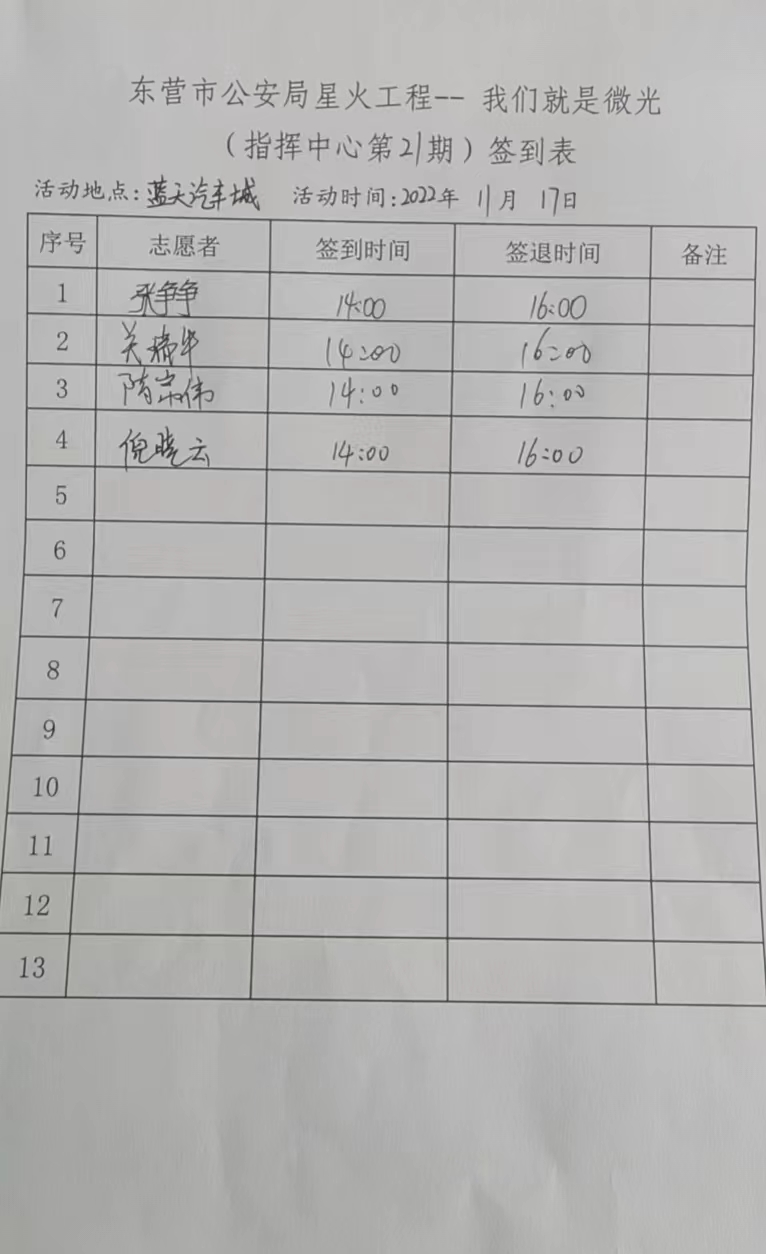 东营市公安局星火工程-- 我们就是微光
（指挥中心第21期）签到表
活动地点：蓝天汽车城 活动时间：2022年 11月 17日
序号 志愿者 签到时间 签退时间 备注
1 张争争 14:00 16:00
2 关瑞华 14:00 16:00
3 隋宗伟 14:00 16:00
4 倪晓云 14:00 16:00
5
6
7
8
9
10
11
12
13